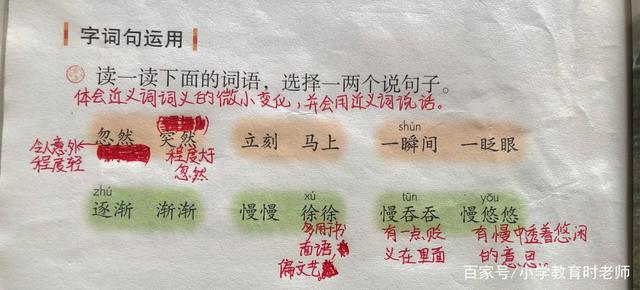 字词句运用
读一读下面的词语，选择一两个说句子。
体会近义词词义的微小变化，并会用近义词说话。
shùn
忽然 突然 立刻 马上 一瞬间 一眨眼
令人意外
程度轻
程度大于
忽然
zhú xú tūn yōu
逐渐 渐渐 慢慢 徐徐 慢吞吞 慢悠悠
多用于书
面语，
偏文艺
有一点贬
义在里面
有慢中透着悠闲
的意思
百家号/小学教育时老师